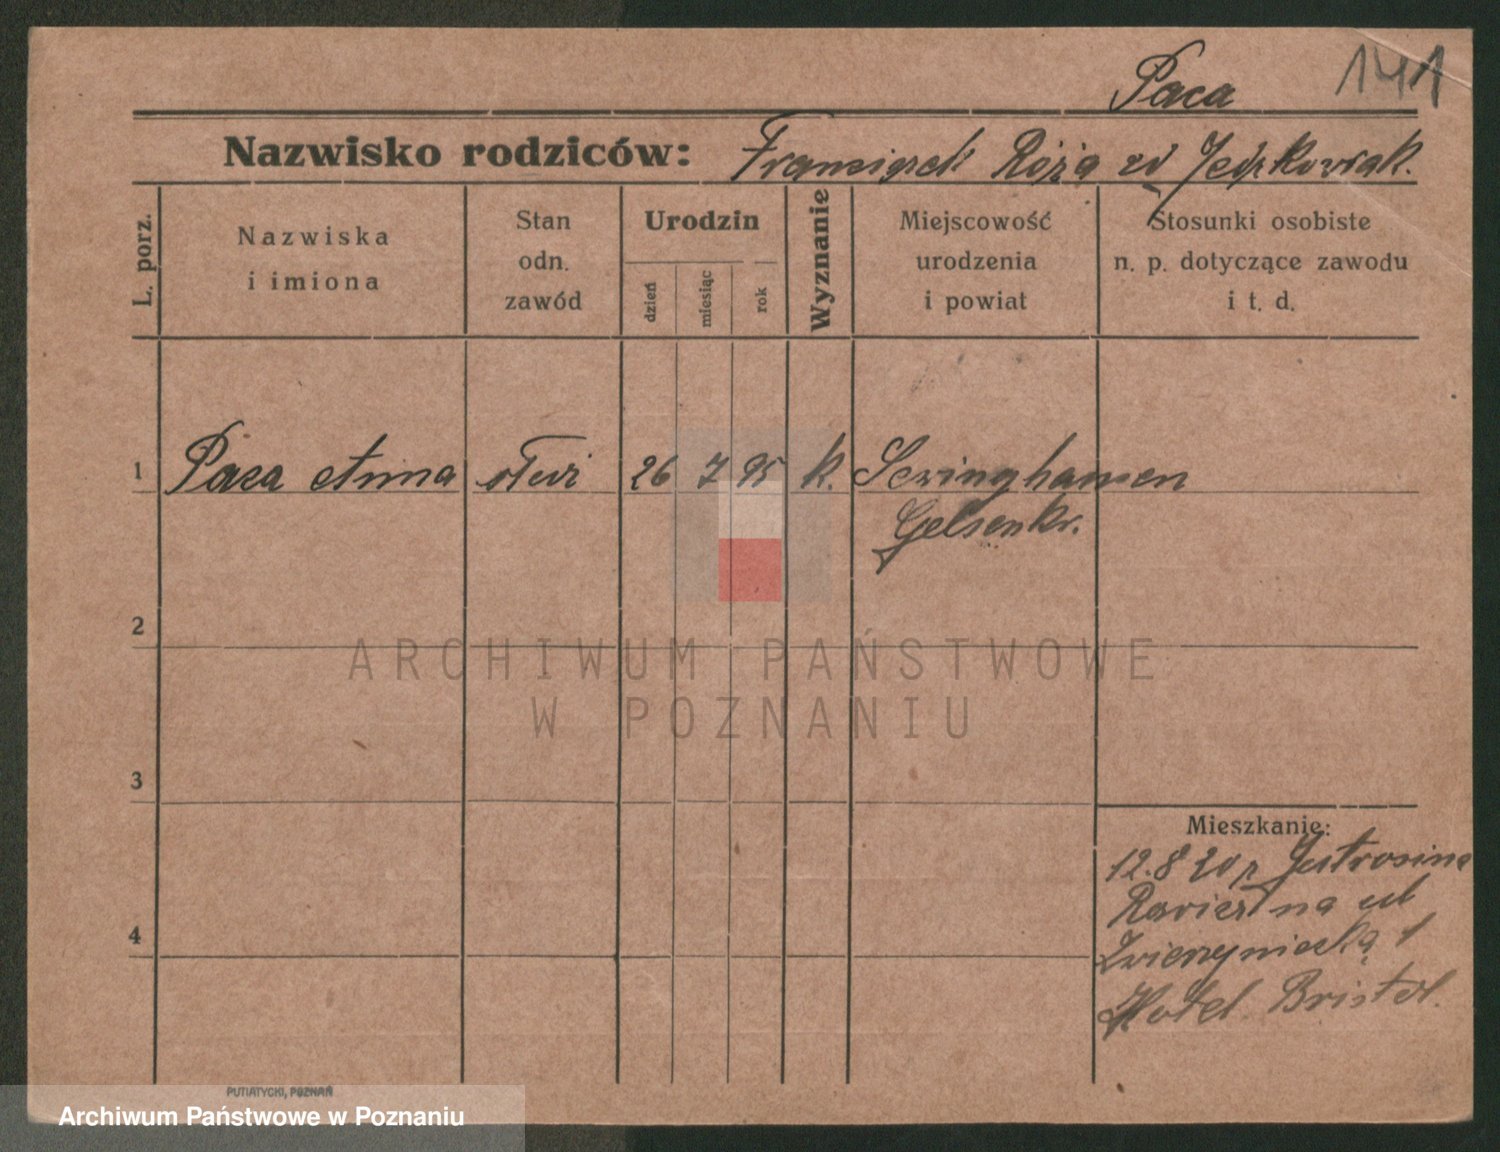 Paca 141
Nazwisko rodziców: Franciszek Róża zd Jędrkowiak.
L. porz.
Nazwiska
i imiona
Stan
odn.
zawód
Urodzin
dzień
miesiąc
rok
Wyznanie
Miejscowość
urodzenia
i powiat
Stosunki osobiste
n. p. dotyczące zawodu
i t. d.
1 Paca Anna 26 7 95 k.
Gelsenkr.
2
3
4
Mieszkanie:
12.8 20 z Jutrosina
Rawicz na ul
Zwierzyniecką 1
Hotel Bristol.
ARCHIWUM PAŃSTWOWE
W POZNANIU
PUTIATYCKI, POZNAŃ
Archiwum Państwowe w Poznaniu